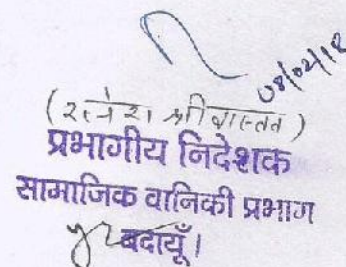 08/02/18
(रत्नेश श्रीवास्तव)
प्रभागीय निदेशक
सामाजिक वानिकी प्रभाग
बदायूँ।